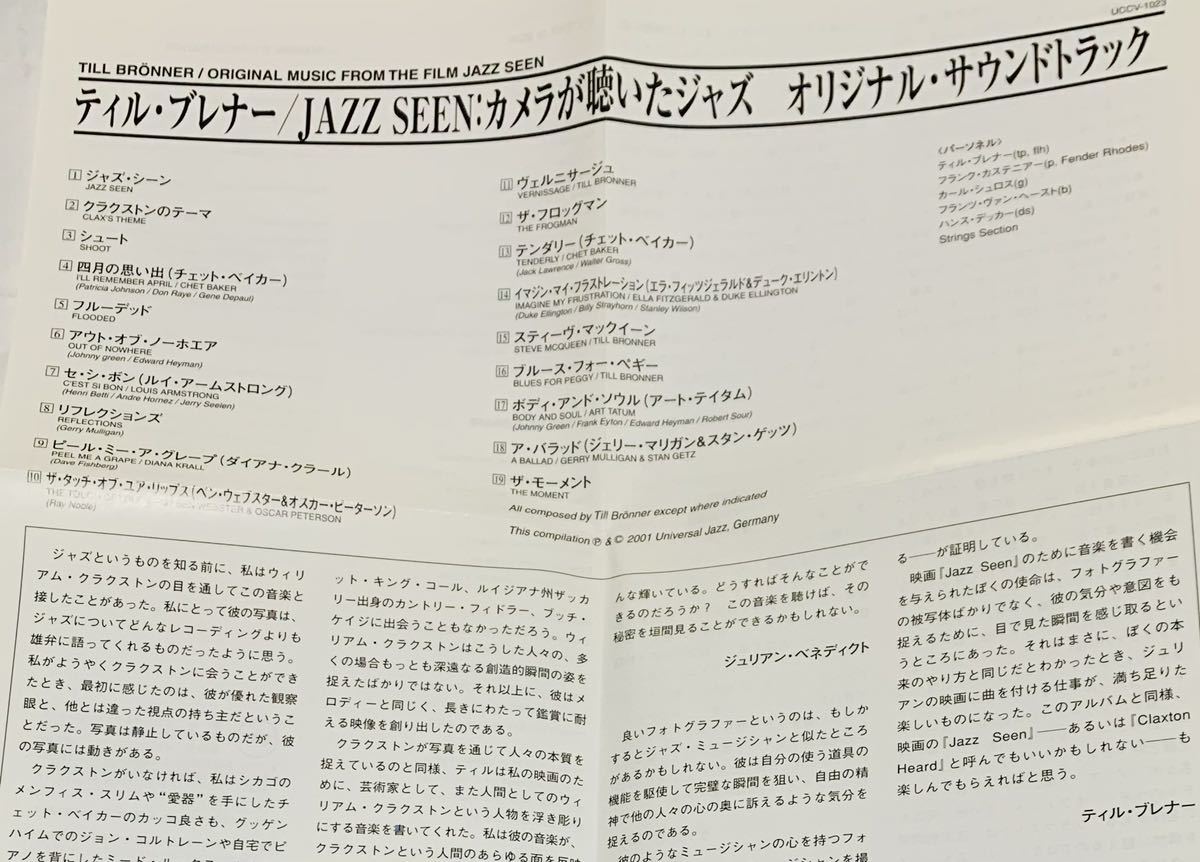 UCCV-1023
TILL BRÖNNER / ORIGINAL MUSIC FROM THE FILM JAZZ SEEN
ティル・ブレナー/JAZZ SEEN:カメラが聴いたジャズ オリジナル・サウンドトラック
1 ジャズ・シーン
JAZZ SEEN
2 クラクストンのテーマ
CLAX'S THEME
3 シュート
SHOOT
4 四月の思い出(チェット・ベイカー)
I'LL REMEMBER APRIL / CHET BAKER
(Patricia Johnson / Don Raye / Gene Depaul)
5 フルーデッド
FLOODED
6 アウト・オブ・ノーホエア
OUT OF NOWHERE
(Johnny green / Edward Heyman)
7 セ・シ・ボン(ルイ・アームストロング)
C'EST SI BON / LOUIS ARMSTRONG
(Henri Betti / Andre Hornez / Jerry Seelen)
8 リフレクションズ
REFLECTIONS
(Gerry Mulligan)
9 ピール・ミー・ア・グレープ(ダイアナ・クラール)
PEEL ME A GRAPE / DIANA KRALL
(Dave Fishberg)
10 ザ・タッチ・オブ・ユア・リップス(ベン・ウェブスター&オスカー・ピーターソン)
THE WEBSTER & OSCAR PETERSON
(Ray Noble)
11 ヴェルニサージュ
VERNISSAGE / TILL BRONNER
12 ザ・フロッグマン
THE FROGMAN
13 テンダリー(チェット・ベイカー)
TENDERLY / CHET BAKER
(Jack Lawrence / Walter Gross)
14 イマジン・マイ・フラストレーション(エラ・フィッツジェラルド&デューク・エリントン)
IMAGINE MY FRUSTRATION / ELLA FITZGERALD & DUKE ELLINGTON
(Duke Ellington / Billy Strayhorn / Stanley Wilson)
15 スティーヴ・マックイーン
STEVE MCQUEEN / TILL BRONNER
16 ブルース・フォー・ペギー
BLUES FOR PEGGY / TILL BRONNER
17 ボディ・アンド・ソウル(アート・テイタム)
BODY AND SOUL / ART TATUM
(Johnny Green / Frank Eyton / Edward Heyman / Robert Sour)
18 ア・バラッド(ジェリー・マリガン&スタン・ゲッツ)
A BALLAD / GERRY MULLIGAN & STAN GETZ
19 ザ・モーメント
THE MOMENT
All composed by Till Brönner except where indicated
This compilation ℗ & © 2001 Universal Jazz, Germany
〈パーソネル〉
ティル・ブレナー(tp, flh)
フランク・カステニアー(p, Fender Rhodes)
カール・シュロス(g)
フランツ・ヴァン・ヘースト(b)
ハンス・デッカー(ds)
Strings Section
ジャズというものを知る前に、私はウィリ
アム・クラクストンの目を通してこの音楽と
接したことがあった。私にとって彼の写真は、
ジャズについてどんなレコーディングよりも
雄弁に語ってくれるものだったように思う。
私がようやくクラクストンに会うことができ
たとき、最初に感じたのは、彼が優れた観察
眼と、他とは違った視点の持ち主だというこ
とだった。写真は静止しているものだが、彼
の写真には動きがある。
クラクストンがいなければ、私はシカゴの
メンフィス・スリムや“愛器”を手にしたチ
ェット・ベイカーのカッコ良さも、グッゲン
ハイムでのジョン・コルトレーンや自宅でピ
アノを背にした
ット・キング・コール、ルイジアナ州ザッカ
リー出身のカントリー・フィドラー、ブッチ・
ケイジに出会うこともなかっただろう。ウィ
リアム・クラクストンはこうした人々の、多
くの場合もっとも深遠なる創造的瞬間の姿を
捉えたばかりではない。それ以上に、彼はメ
ロディーと同じく、長きにわたって鑑賞に耐
える映像を創り出したのである。
クラクストンが写真を通じて人々の本質を
捉えているのと同様、ティルは私の映画のた
めに、芸術家として、また人間としてのウィ
リアム・クラクストンという人物を浮き彫り
にする音楽を書いてくれた。私は彼の音楽が、
クラクストンという人間のあらゆる面を反映
んな輝いている。どうすればそんなことがで
きるのだろうか? この音楽を聴けば、その
秘密を垣間見ることができるかもしれない。
ジュリアン・ベネディクト
良いフォトグラファーというのは、もしか
するとジャズ・ミュージシャンと似たところ
があるかもしれない。彼は自分の使う道具の
機能を駆使して完璧な瞬間を狙い、自由の精
神で他の人々の心の奥に訴えるような気分を
捉えるのである。
彼のようなミュージシャンの心を持つフォ
る——が証明している。
映画『Jazz Seen』のために音楽を書く機会
を与えられたぼくの使命は、フォトグラファー
の被写体ばかりでなく、彼の気分や意図をも
捉えるために、目で見た瞬間を感じ取るとい
うところにあった。それはまさに、ぼくの本
来のやり方と同じだとわかったとき、ジュリ
アンの映画に曲を付ける仕事が、満ち足りた
楽しいものになった。このアルバムと同様、
映画の『Jazz Seen』——あるいは『Claxton
Heard』と呼んでもいいかもしれない——も
楽しんでもらえればと思う。
ティル・ブレナー